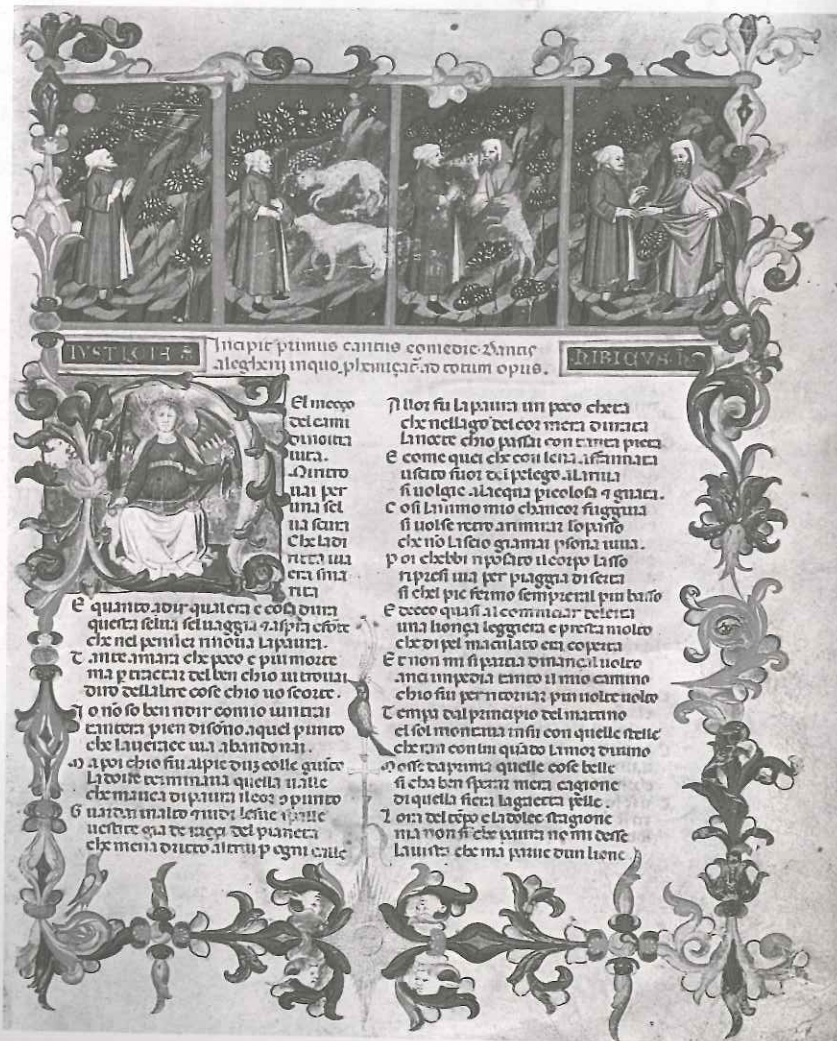 IUSTICIA
Incipit primus cantus comedie Dantis
alegherij in quo phemiçat ad totum opus.
El meçço
del cami
di nostra
uita.
Mi ritro
uai per
una sel
ua scura
Che la di
ritta uia
era sma
rita
E quanto adir qual era e cosa dura
questa selua seluaggia & aspra e forte
che nel pensier rinoua la paura.
Tante amara che poco e piu morte
ma p tractar del ben chio ui trouai
diro dellaltre cose chio uo scorte.
Io no so ben ridir comio uintrai
tantera pien di sono aquel punto
che la uerace uia abandonai.
Ma poi chio fui alpie dun colle giunto
la doue terminaua quella ualle
che mauea di paura il cor opunto
Guardai in alto & uidi le sue spalle
uestite gia de raggi del pianeta
che mena dritto altrui p ogni calle
Allor fu la paura un poco cheta
che nellago del cor mera durata
la nocte chio passai con tanta pieta
E come quei che con lena affannata
uscito fuor del pelego ala riua
si uolgie alacqua picolosa & guata.
Cosi lanimo mio chancor fuggiua
si uolse retro arimirar lo passo
che no lascio giamai psona uiua.
Poi chebbi riposato il corpo lasso
ripresi uia per piaggia diserta
si chel pie fermo sempreral piu basso
Et ecco quasi al cominciar delerta
una lionça leggiera e presta molto
che di pel maculato era coperta
Et non mi si partia dinançi il uolto
ançi impedia tanto il mio camino
chio fui per ritornar piu uolte uolto
Tempa dal principio del mattino
el sol montaua insu con quelle stelle
che ran con lui quado lamor diuino
Mosse daprima quelle cose belle
si cha ben sperar mera cagione
di quella fiera la gaietta pelle.
Lora del tepo e la dolce stagione
ma non si che paura no mi desse
la uista che ma parue dun lione